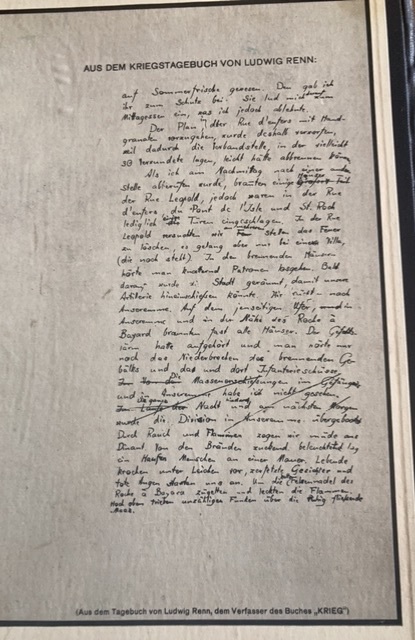 AUS DEM KRIEGSTAGEBUCH VON LUDWIG RENN:
auf Sommerfrische gewesen. Den gab ich
ihr zum Schutz bei. Sie lud mich zum
Mittagessen ein, was ich jedoch ablehnte.
Der Plan, über Rue d'enfers mit Hand-
granaten vorzugehen, wurde deshalb verworfen,
weil dadurch die Verbandstelle, in der vielleicht
50 Verwundete lagen, leicht hätte abbrennen
Als ich am Nachmittag nach einer
stelle abberufen wurde, brannten einige
der Rue Leopold, jedoch waren in der Rue
d'enfers, du Pont de und St. Roch
lediglich die Türen eingeschlagen. In der Rue
Leopold versuchten wir an Stellen das Feuer
zu löschen, es gelang aber nur bei einer Villa,
(die noch steht). In den brennenden Häusern
hörte man knatternd Patronen losgehen. Bald
darauf wurde d. Stadt geräumt, damit unsere
Artillerie hineinschießen könnte. Wir rückten nach
Anseremme. Auf dem jenseitigen Ufer
Anseremme und in der Nähe des Roche à
Bayard brannten fast alle Häuser. Der Gefechts-
lärm hatte aufgehört und man hörte nur
noch das Niederbrechen des brennenden Ge-
bälks und da und dort Infanterieschüsse.
Die Massenerschießungen im
und Anseremme habe ich nicht gesehen.
Nacht und am nächsten Morgen
wurde die Division in Anseremme übergesetzt
Durch Rauch und Flammen zogen wir müde aus
Dinant. Von den Bränden zuckend beleuchtet lag
ein Haufen Menschen an einer Mauer. Lebende
krochen unter Leichen vor, zerfetzte Gesichter und
tote Augen starrten uns an. Um die Felsennadel des
Roche à Bayard züngelten und leckten die Flammen.
Hoch oben trieben unzählige Funken über die ruhig fließende
Maas.
(Aus dem Tagebuch von Ludwig Renn, dem Verfasser des Buches „KRIEG")